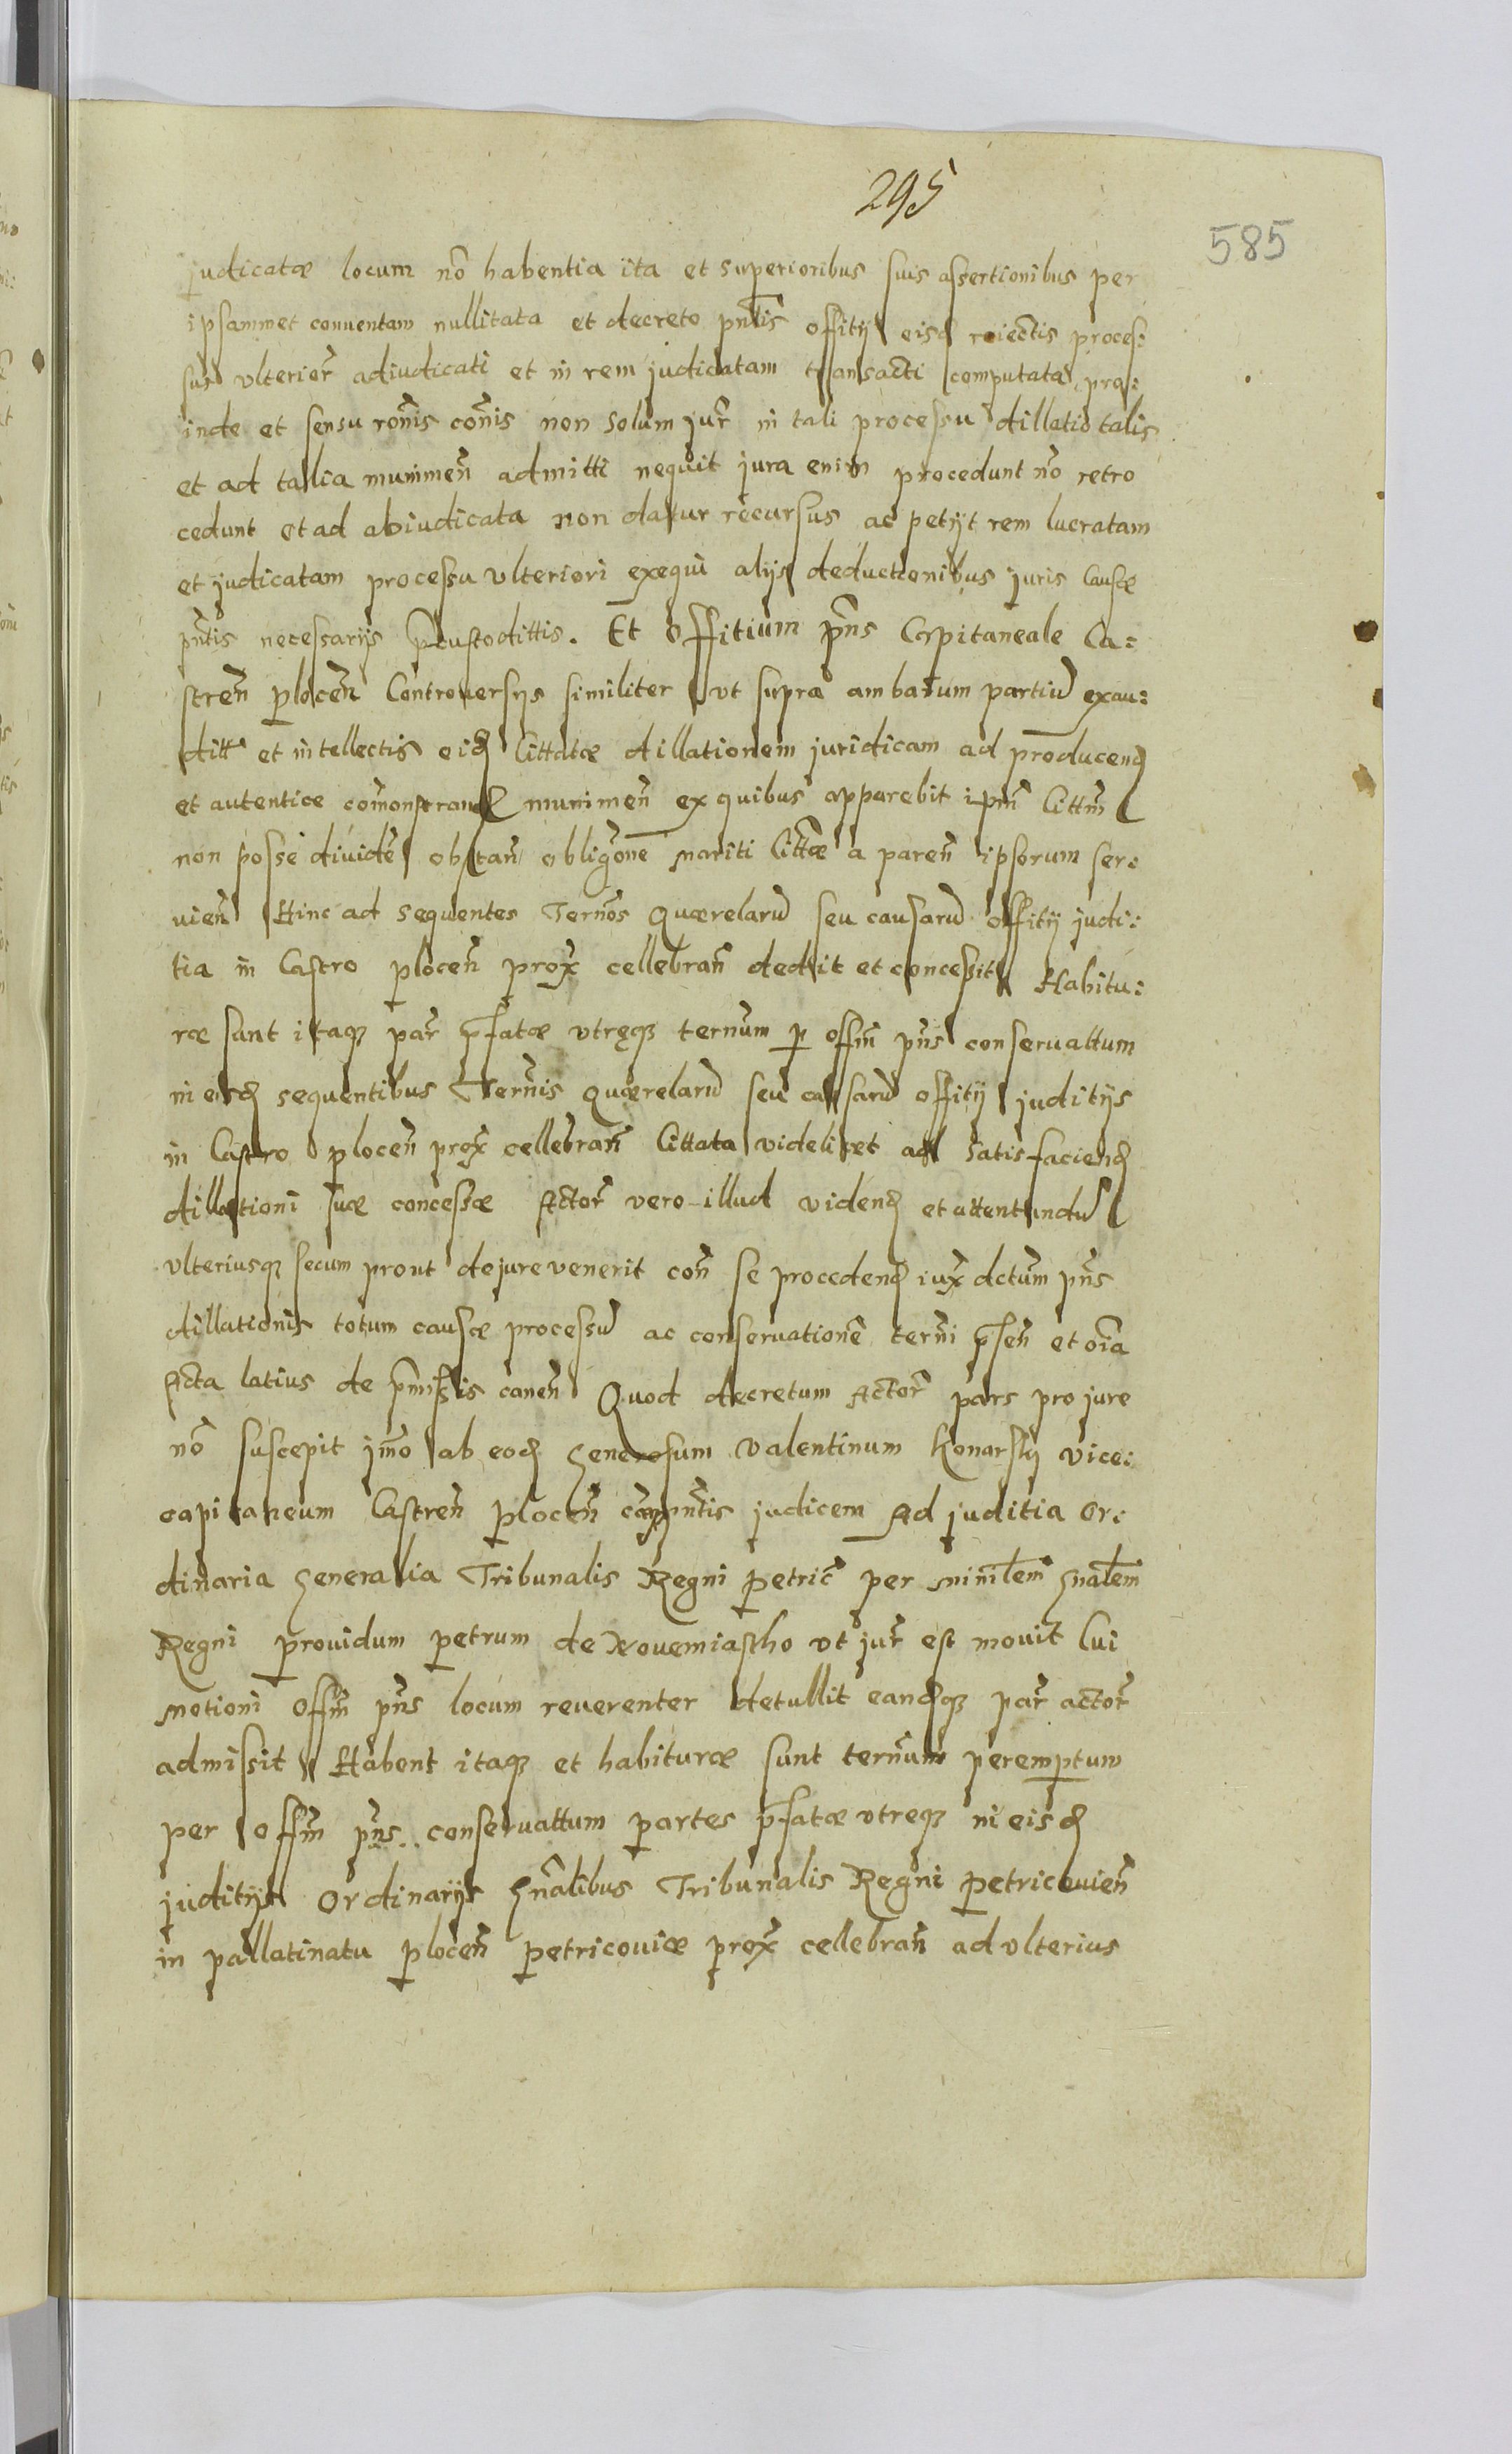 295
585
judicatæ locum nõ habentia ita et superioribus suis assertionibus per
ipsammet conuentam nullitata et decreto pñtis offitij eisd reiectis proces:
sus vlterior̃ adiudicati et in rem judicatam transacti computata, pro:
inde et sensu rõnis cõnis non solum jur̃ in tali processu dillatio talis
et ad talia munimeñ admitti nequit jura enim procedunt nõ retro
cedunt et ad abiudicata non datur recursus ac petijt rem lucratam
et judicatam processu vlteriori exequi alijs deductionibus juris causæ
pñtis necessarijs p̃custodittis. Et Offitium pñs Capitaneale Ca:
streñ ploceñ Controuersijs similiter vt supra ambarum partiũ exau:
ditt et intellectis eid Cittatæ dillationem juridicam ad producend
et autentice com̃onstrand munimeñ ex quibus apparebit ipm̃ Cittm̃
non posse diuidẽ obstañ obligõne mariti Citt̃æ a pareñ ipsorum ser:
uieñ Hinc ad sequentes Terños Quærelarũ seu causarũ offitij judi:
tia in Castro ploceñ prox̃ cellebrañ dedit et concessit Habitu:
ræ sunt itaq; par̃ p̃fatæ vtręq; terñum p offm̃ pñs conseruattum
in eisd sequentibus Terñis Quærelarũ seu causarũ offitij juditijs
in Castro ploceñ prox̃ cellebrañ Cittata videlicet ad satisfaciend
dillationi suæ concessæ Actor̃ vero illud vidend et attentandũ
vlteriusq; secum prout de jure venerit coñ se procedend iux̃ dctum̃ pñs
dillationis totum causæ processũ ac conseruationẽ terñi p̃señ et oĩa
Acta latius de p̃missis caneñ Quod decretum Actor̃ pars pro jure
nõ suscepit jm̃o ab eod Generosum Valentinum Konarskj vice:
capitaneum Castreñ Ploceñ pñtis judicem Ad juditia Or:
dinaria Generalia Tribunalis Regni Petric̃ per miniñlem Gnãlem
Regni prouidum petrum de Nouemiastho vt jur̃ est mouit Cui
motioni offm̃ pñs locum reuerenter detullit eandq; par̃ actor̃
admissit Habent itaq; et habituræ sunt terñum peremptum
per offm̃ pñs conseruattum partes p̃fatæ vtreq; in eisd
juditijs Ordinarijs Gnãlibus Tribunalis Regni Petricouieñ
in pallatinatu ploceñ petricouiæ prox̃ cellebrañ ad vlterius